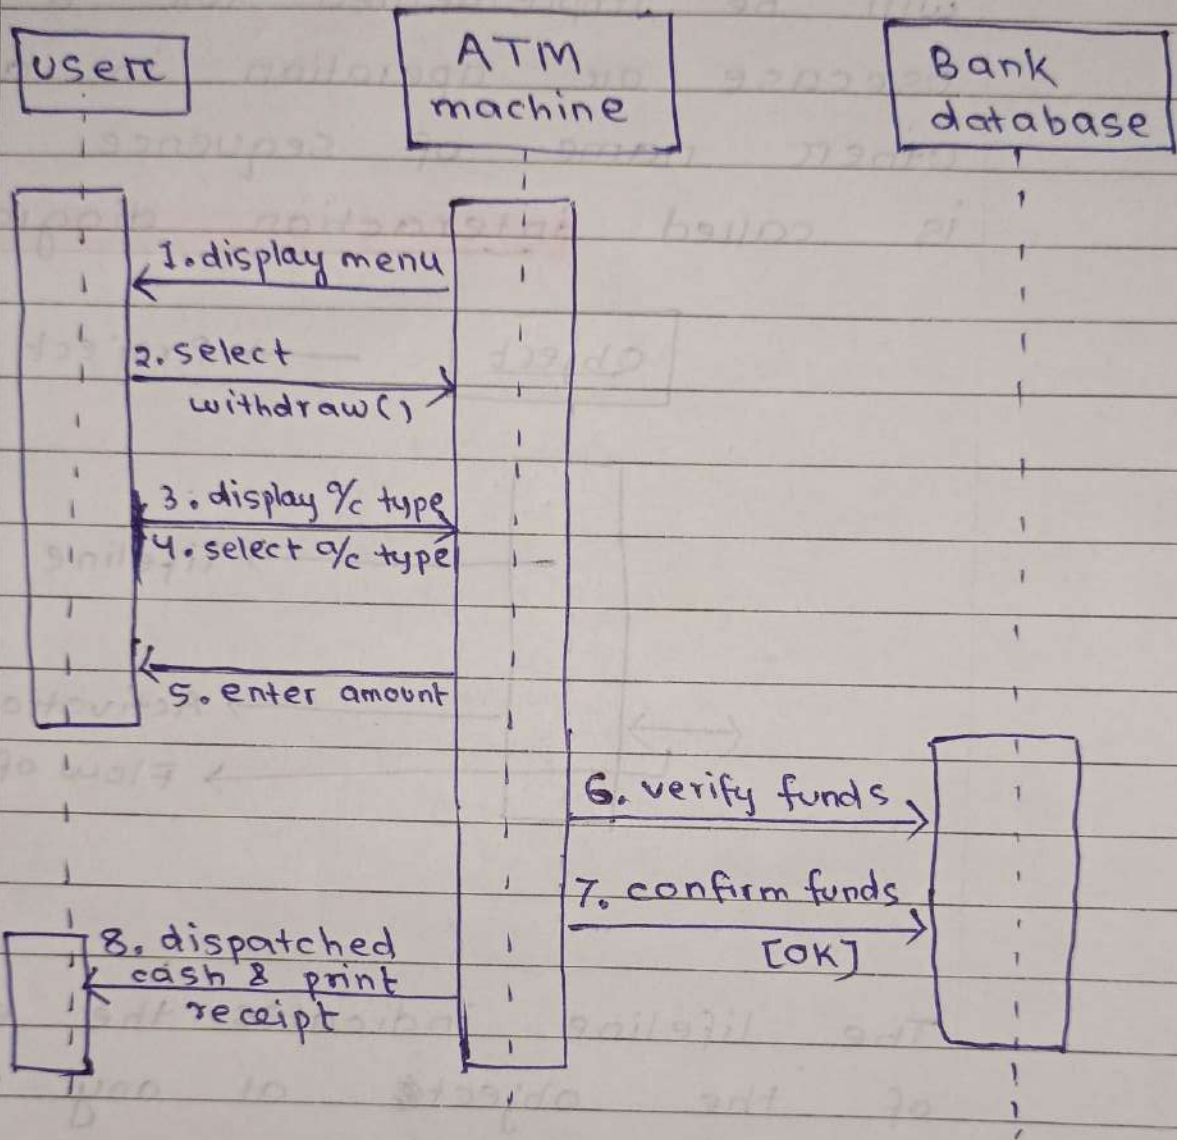 user
ATM
machine
Bank
database
1. display menu
2. select
withdraw()
3. display a/c type
4. select a/c type
5. enter amount
6. verify funds
7. confirm funds
[OK]
8. dispatched
cash & print
receipt